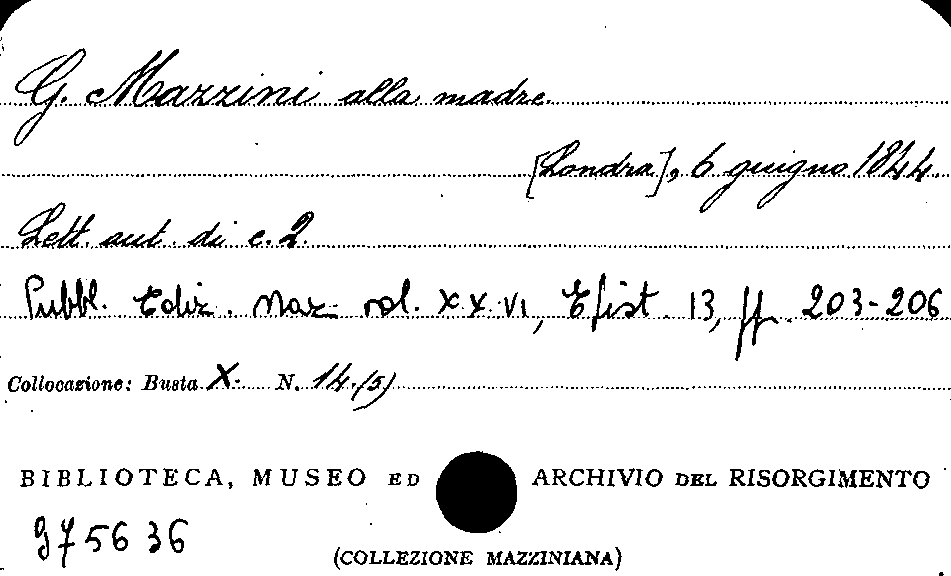 G. Mazzini alla madre.
[Londra], 6 giugno 1844.
Lett. aut. di c. 2.
Pubbl. Ediz. Naz. vol. XXVI, Epist. 13, pp. 203-206
Collocazione: Busta X. N. 14 (5)
BIBLIOTECA, MUSEO ED ARCHIVIO DEL RISORGIMENTO
975636
(COLLEZIONE MAZZINIANA)